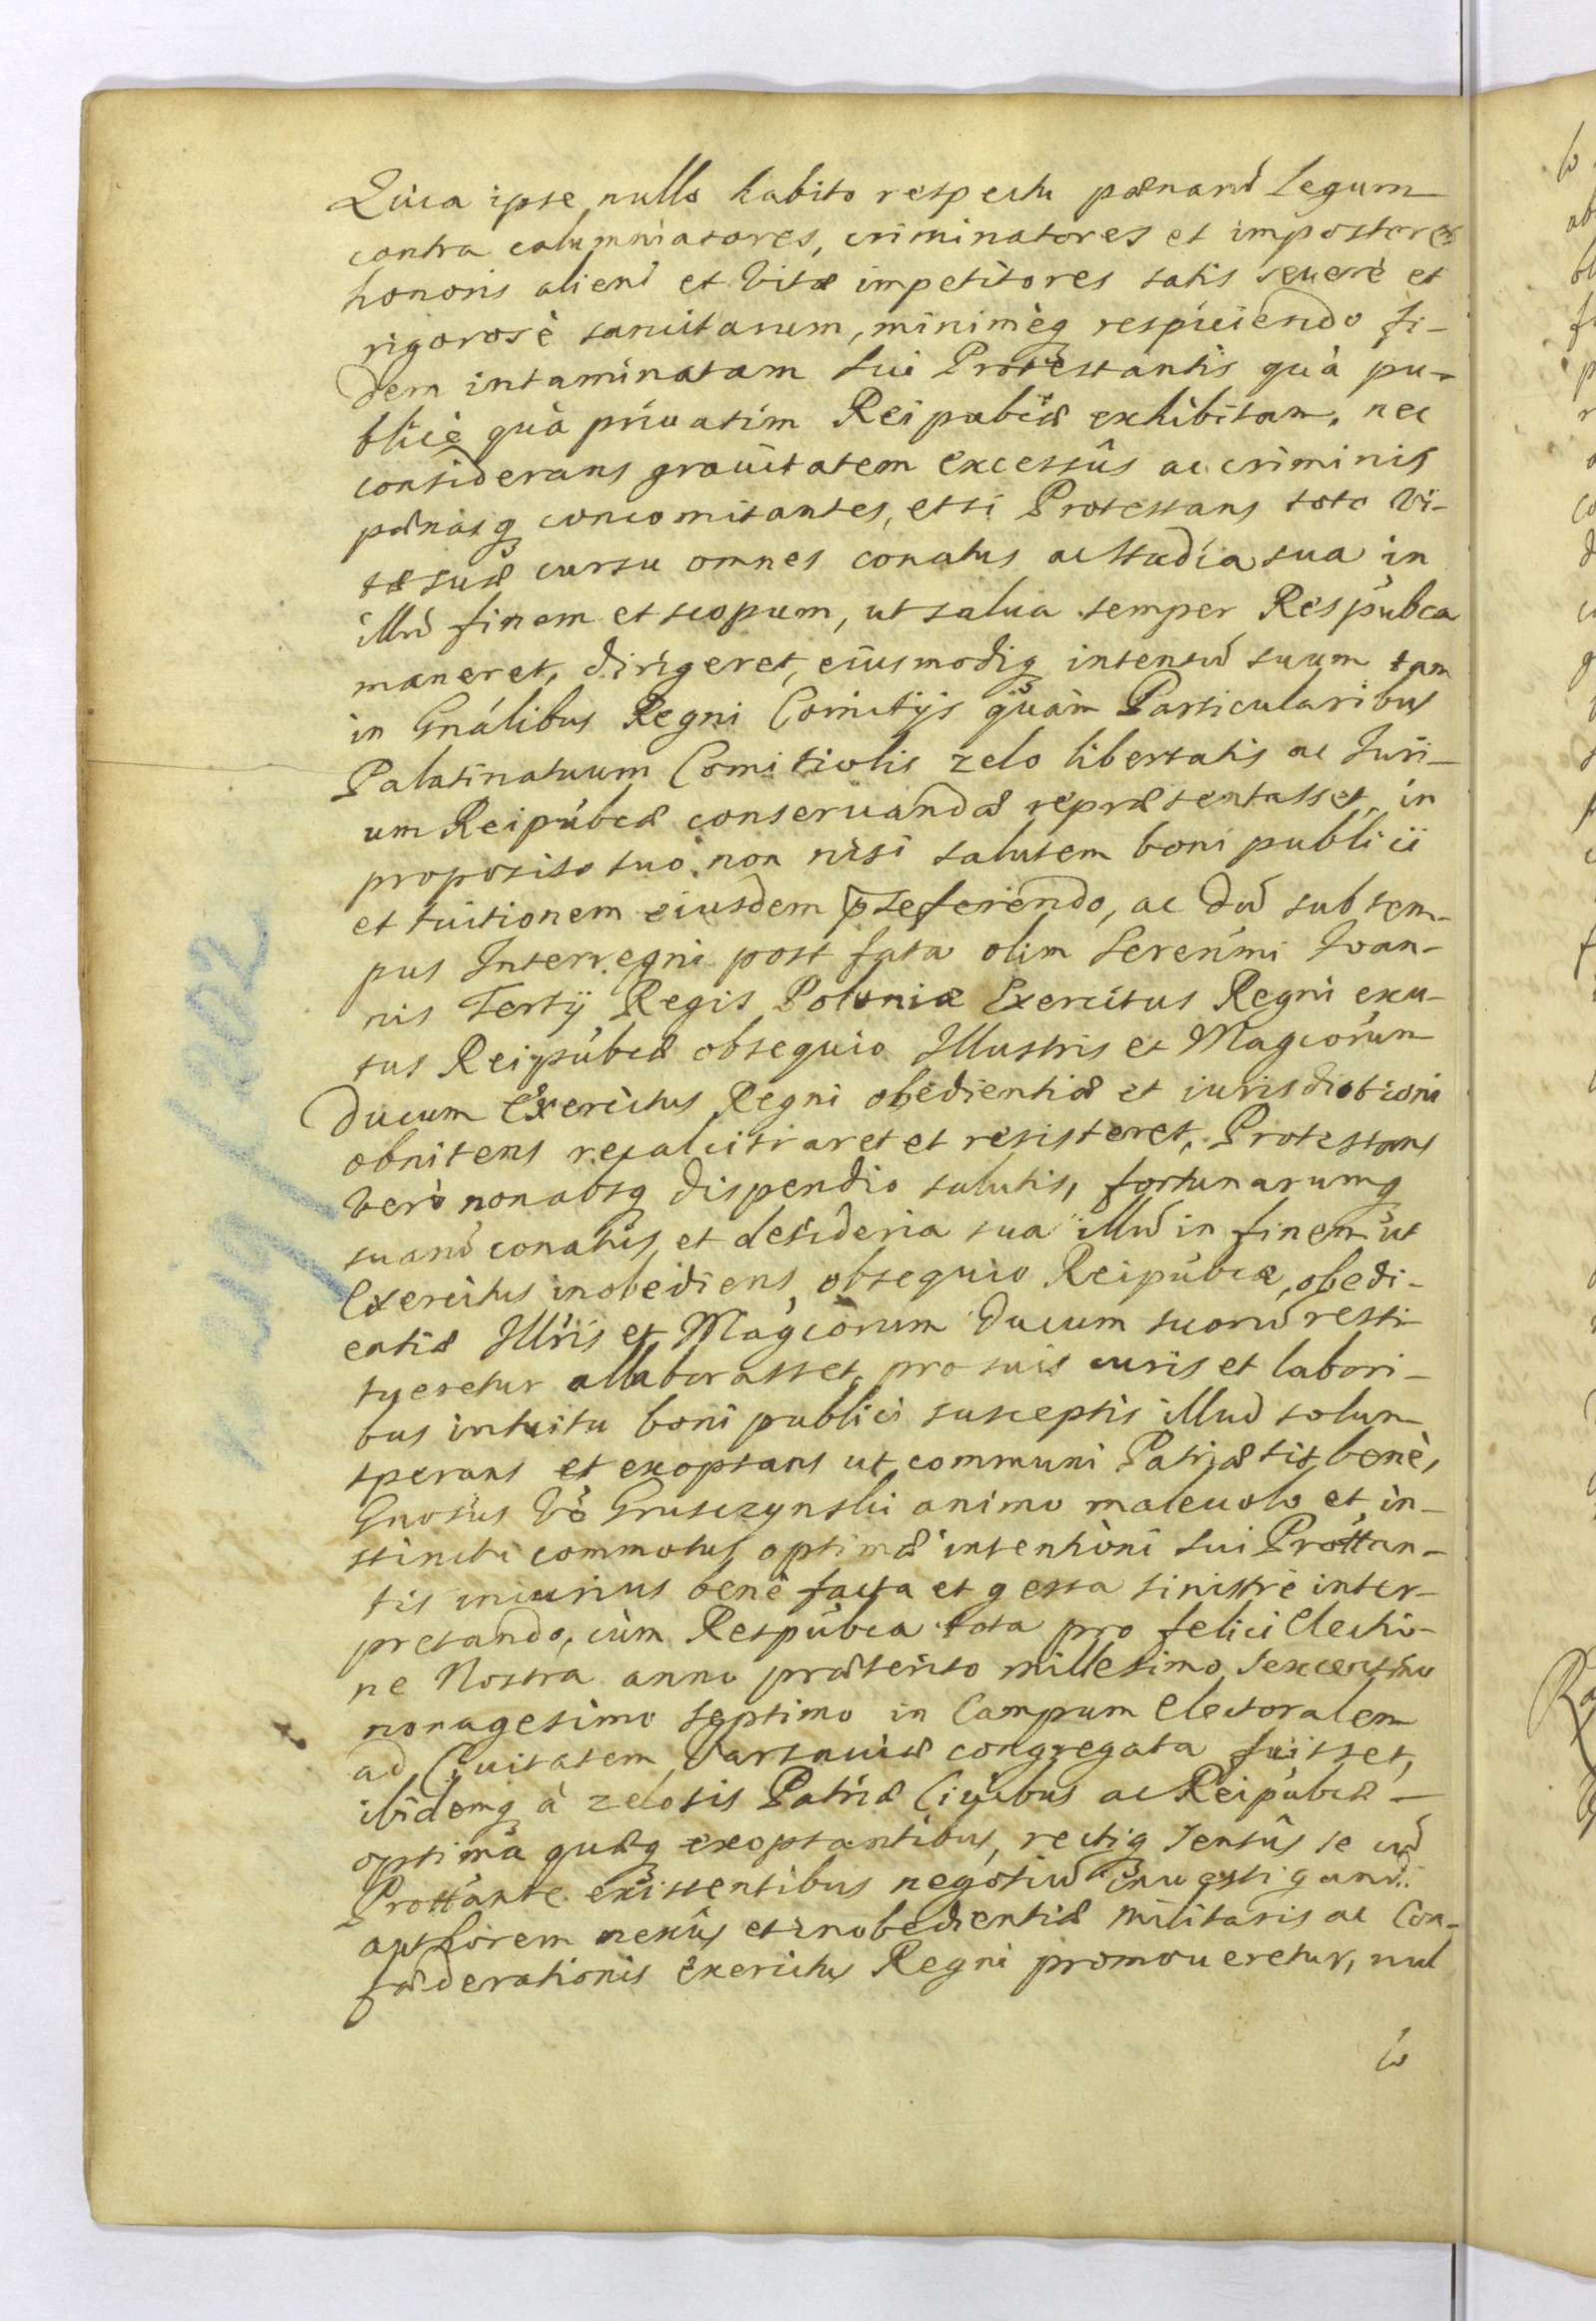 Quia ipse nullo habito respectu pænarũ Legum
contra calumniatores, criminatores et impostores
honoris alieni et Vitæ impetitores satis seuerè et
rigorosè sancitarum, minimèq; respiciendo fi-
dem intaminatam sui Protestantis quà pu-
blicè quà priuatim Reipubcæ exhibitam, nec
considerans grauitatem excessûs ac criminis
pænasq; concomitantes, etsi Protestans toto Vi-
tæ suæ cursu omnes conatus ac studia sua in
illũ finem et scopum, ut salua semper Respubca
maneret, dirigeret, eiusmodiq; intentũ suum tam
in Gnálibus Regni Comitijs quàm Particularibus
Palatinatuum Comitiolis zelo libertatis ac Juri-
um Reipubcæ conseruandæ repræsentasset, in
proposito suo non nisi salutem boni publici
et tuitionem eiusdem præferendo, ac dũ sub tem-
pus Interregni post fata olim Serenimi Joan-
nis Tertij Regis Poloniæ Exercitus Regni exu-
tus Reipubcæ obsequio Illustris et Magcorum
Ducum Exercitus Regni obedientiæ et iurisdictioni
obnitens recalcitraret et resisteret, Protestans
Verò non absq; dispendio salutis, fortunarumq;
suarũ conatus et desideria sua illũ in finem ut
Exercitus inobediens, obsequio Reipubcæ, obedi-
entiæ Illris et Magcorum Ducum suorũ resti-
tueretur allaborasset, pro suis curis et labori-
bus intuitu boni publici susceptis illud solum
sperans et exoptans ut communi Patriæ sit benè,
Gnosus Vò Gruszczynski animo maleuolo et in-
stinctu commotus optimæ intentioni sui Prottan-
tis iniurius benè facta et gesta sinistrè inter-
pretando, cùm Respubca tota pro felici Electio-
ne Nostra anno præterito millesimo sexcentmo
nonagesimo septimo in Campum Electoralem
ad Ciuitatem Varsauiæ congregata fuisset,
ibidemq; à zelosis Patriæ Ciuibus ac Reipubcæ
optima quæq; exoptantibus, rectiq; sensûs se cũ
Prottante existentibus negotiũ inuestigandi
authorem nexûs et inobedientiæ militaris ac Con-
fæderationis Exercitus Regni promoueretur, nul
lo